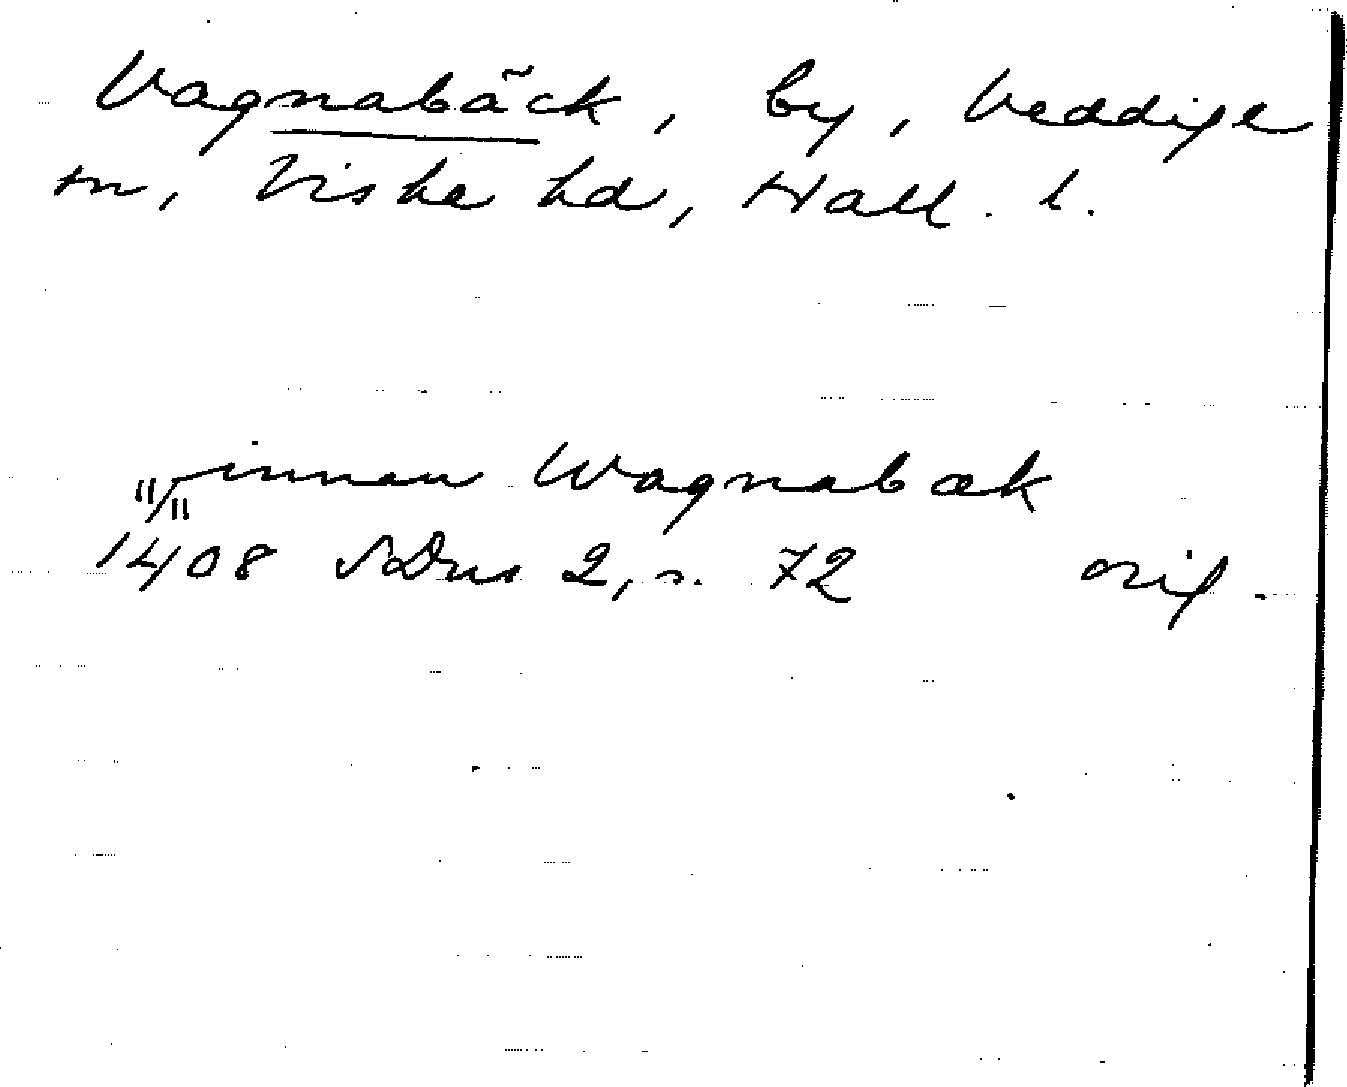 Vagnabäck, by, Veddige
sn, Viske hd, Hall. l.
innan Wagnabæk
11/11
1408 SvDns 2, s. 72 orig.